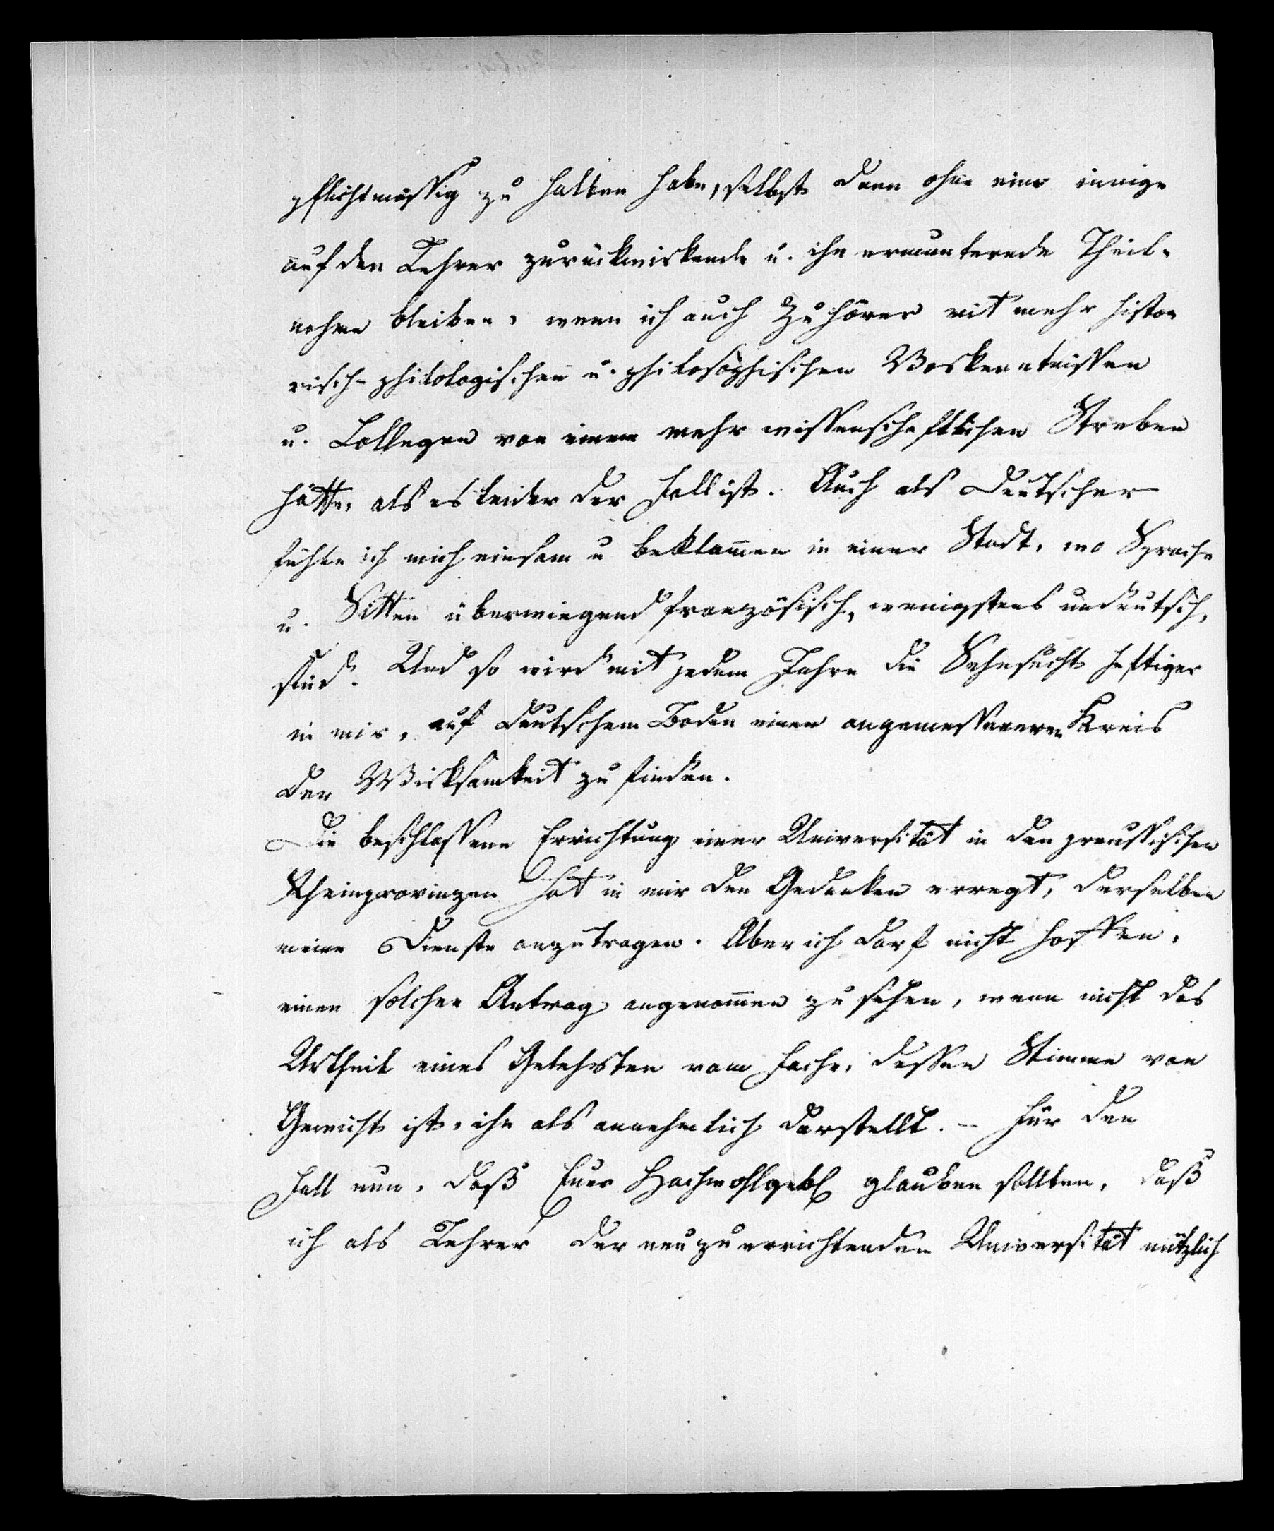 pflichtmässig zu halten habe, selbst dann ohne eine innige
auf den Lehrer zurückwirkende u. ihn ermunternde Theil-
nahme bleiben, wenn ich auch Zuhörer mit mehr histo-
risch-philologischen u. philosophischen Vorkenntnissen
u. Collegen von einem mehr wissenschaftlichen Streben
hätte, als es leider der Fall ist. Auch als Deutscher
fühle ich mich einsam u beklom̄en in einer Stadt, wo Sprache
u. Sitten überwiegend französisch, wenigstens undeutsch,
sind. Und so wird mit jedem Jahre die Sehnsucht heftiger
in mir, auf deutschem Boden einen angemesseneren Kreis
der Wirksamkeit zu finden.
Die beschlossene Errichtung einer Universität in den preussischen
Rheinprovinzen hat in mir den Gedanken erregt, derselben
meine Dienste anzutragen. Aber ich darf nicht hoffen,
einen solchen Antrag angenom̄en zu sehen, wenn nicht das
Urtheil eines Gelehrten vom Fache, dessen Stimme von
Gewicht ist, ihn als annehmlich darstellt. – Für den
Fall nun, daß Euer Hochwohlgeb. glauben sollten, daß
ich als Lehrer der neuzuerrichtenden Universität nützlich